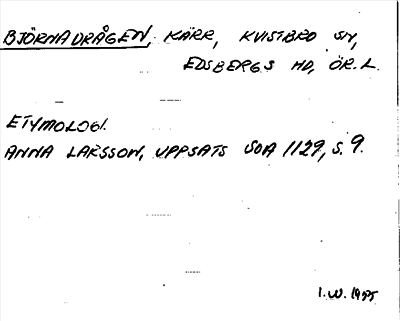 BJÖRNADRÅGEN, KÄRR, KVISTBRO SN,
EDSBERGS HD, ÖR. L.
ETYMOLOGI.
ANNA LARSSON, UPPSATS SOA 1129, S. 9.
I.W. 1975